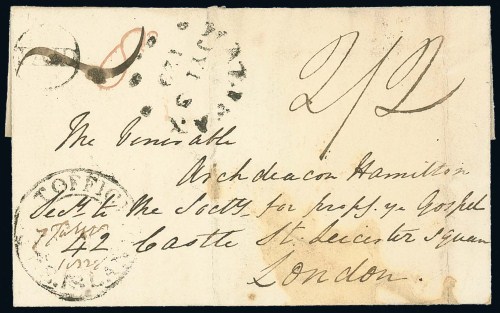 2/2
The Venerable
Archdeacon Hamilton
Secy. to the Socty. for propg. ye Gospel
42 Castle St. Leicester Square
London.